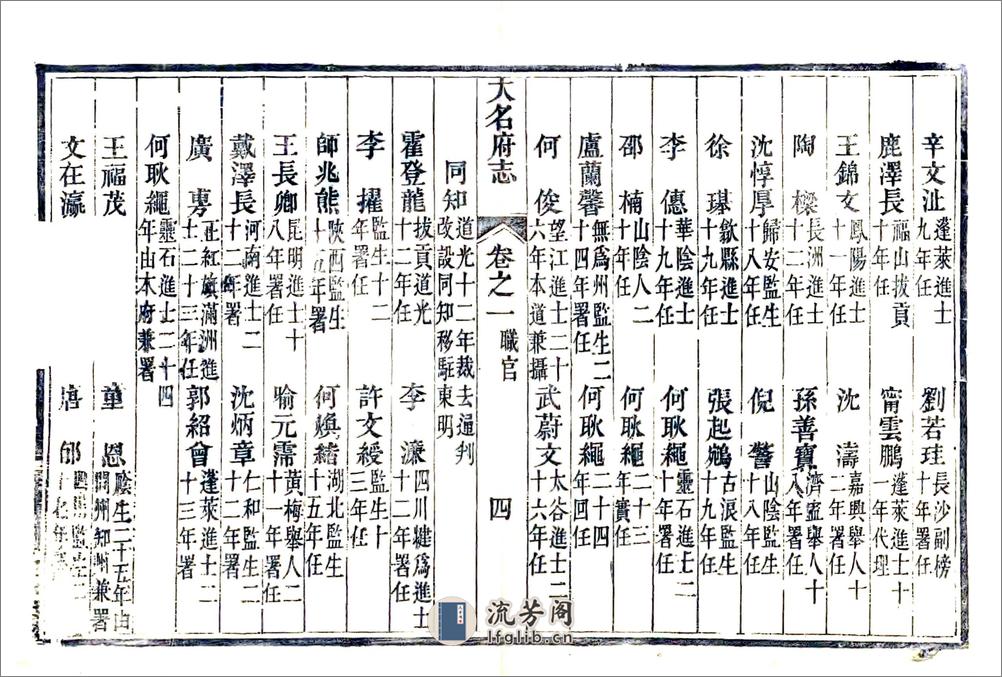 辛文沚 蓬萊進士九年任 劉若珪 長沙副榜十年署任
鹿澤長 福山拔貢十年任 甯雲鵬 蓬萊進士十一年代理
王錦文 鳳陽進士十一年任 沈濤 嘉興舉人十二年署任
陶樑 長洲進士十二年任 孫善寶 濟寧舉人十八年署任
沈惇厚 歸安監生十八年任 倪瑩 山陰監生十八年任
徐璂 歙縣進士十九年任 張起鵷 古浪監生十九年任
李僡 華陰進士十九年任 何耿繩 靈石進士二十年署任
邵楠 山陰人二十年任 何耿繩 二十三年實任
盧蘭馨 無爲州監生二十四年署任 何耿繩 二十四年回任
何俊 望江進士二十六年本道兼攝 武蔚文 太谷進士二十六年任
大名府志 卷之一 職官 四
同知 道光十二年裁去通判改設同知移駐東明
霍登龍 拔貢道光十二年任 李濂 四川犍爲進士十二年署任
李擢 監生十二年署任 許文綬 監生十三年任
師兆熊 陝西監生十五年署 何煥緒 湖北監生十五年任
王長卿 昆明進士十八年署 喻元霈 黃梅舉人二十一年署任
戴澤長 河南進士二十二年署 沈炳章 仁和監生二十二年署任
廣 正紅旗滿洲進士二十三年任 郭紹曾 蓬萊進士二十三年署
何耿繩 靈石進士二十四年由本府兼署
王福茂 童恩 廕生二十五年由開州知州兼署
文在瀛